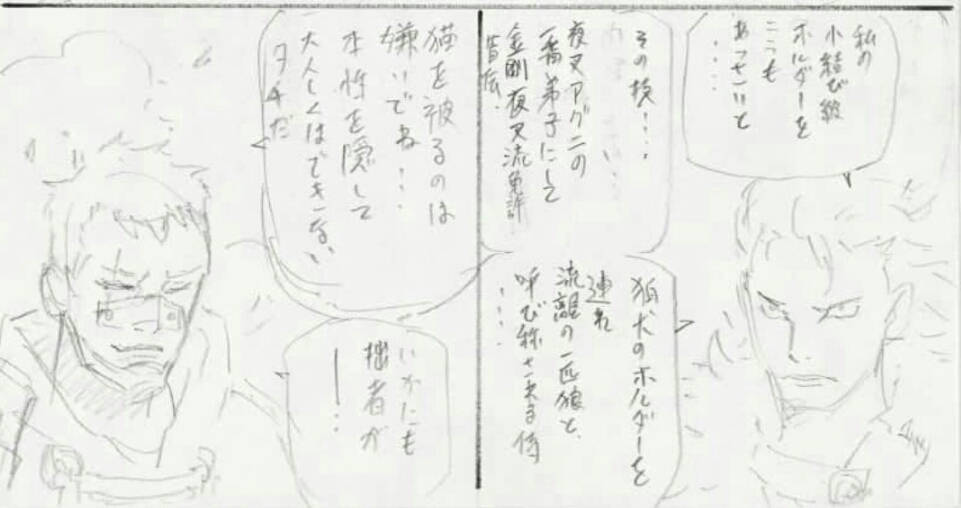 私の
小結び級
ホルダーを
こうも
あっさりと
・・・・
その技・・・・
夜叉アグニの
一番弟子にして
金剛夜叉流免許
皆伝・
狼犬のホルダーを
連れ
流離の一匹狼と、
呼び称される侍
・・・・
猫を被るのは
嫌いでね・・・
本性を隠して
大人しくはできない
タチだ
いかにも
拙者が
ー・・